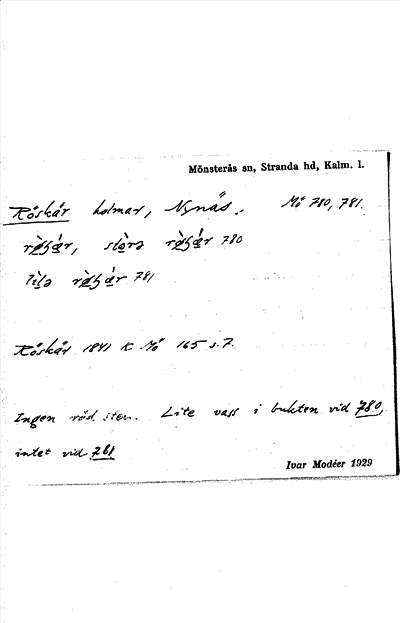 Mönsterås sn, Stranda hd, Kalm. l.
Röskär holmar, Nynäs. Mö 780, 781.
780
781
Röskär 1841 K Mö 165 s. 7.
Ingen röd sten. Lite vass i bukten vid 780,
intet vid 781
Ivar Modéer 1929